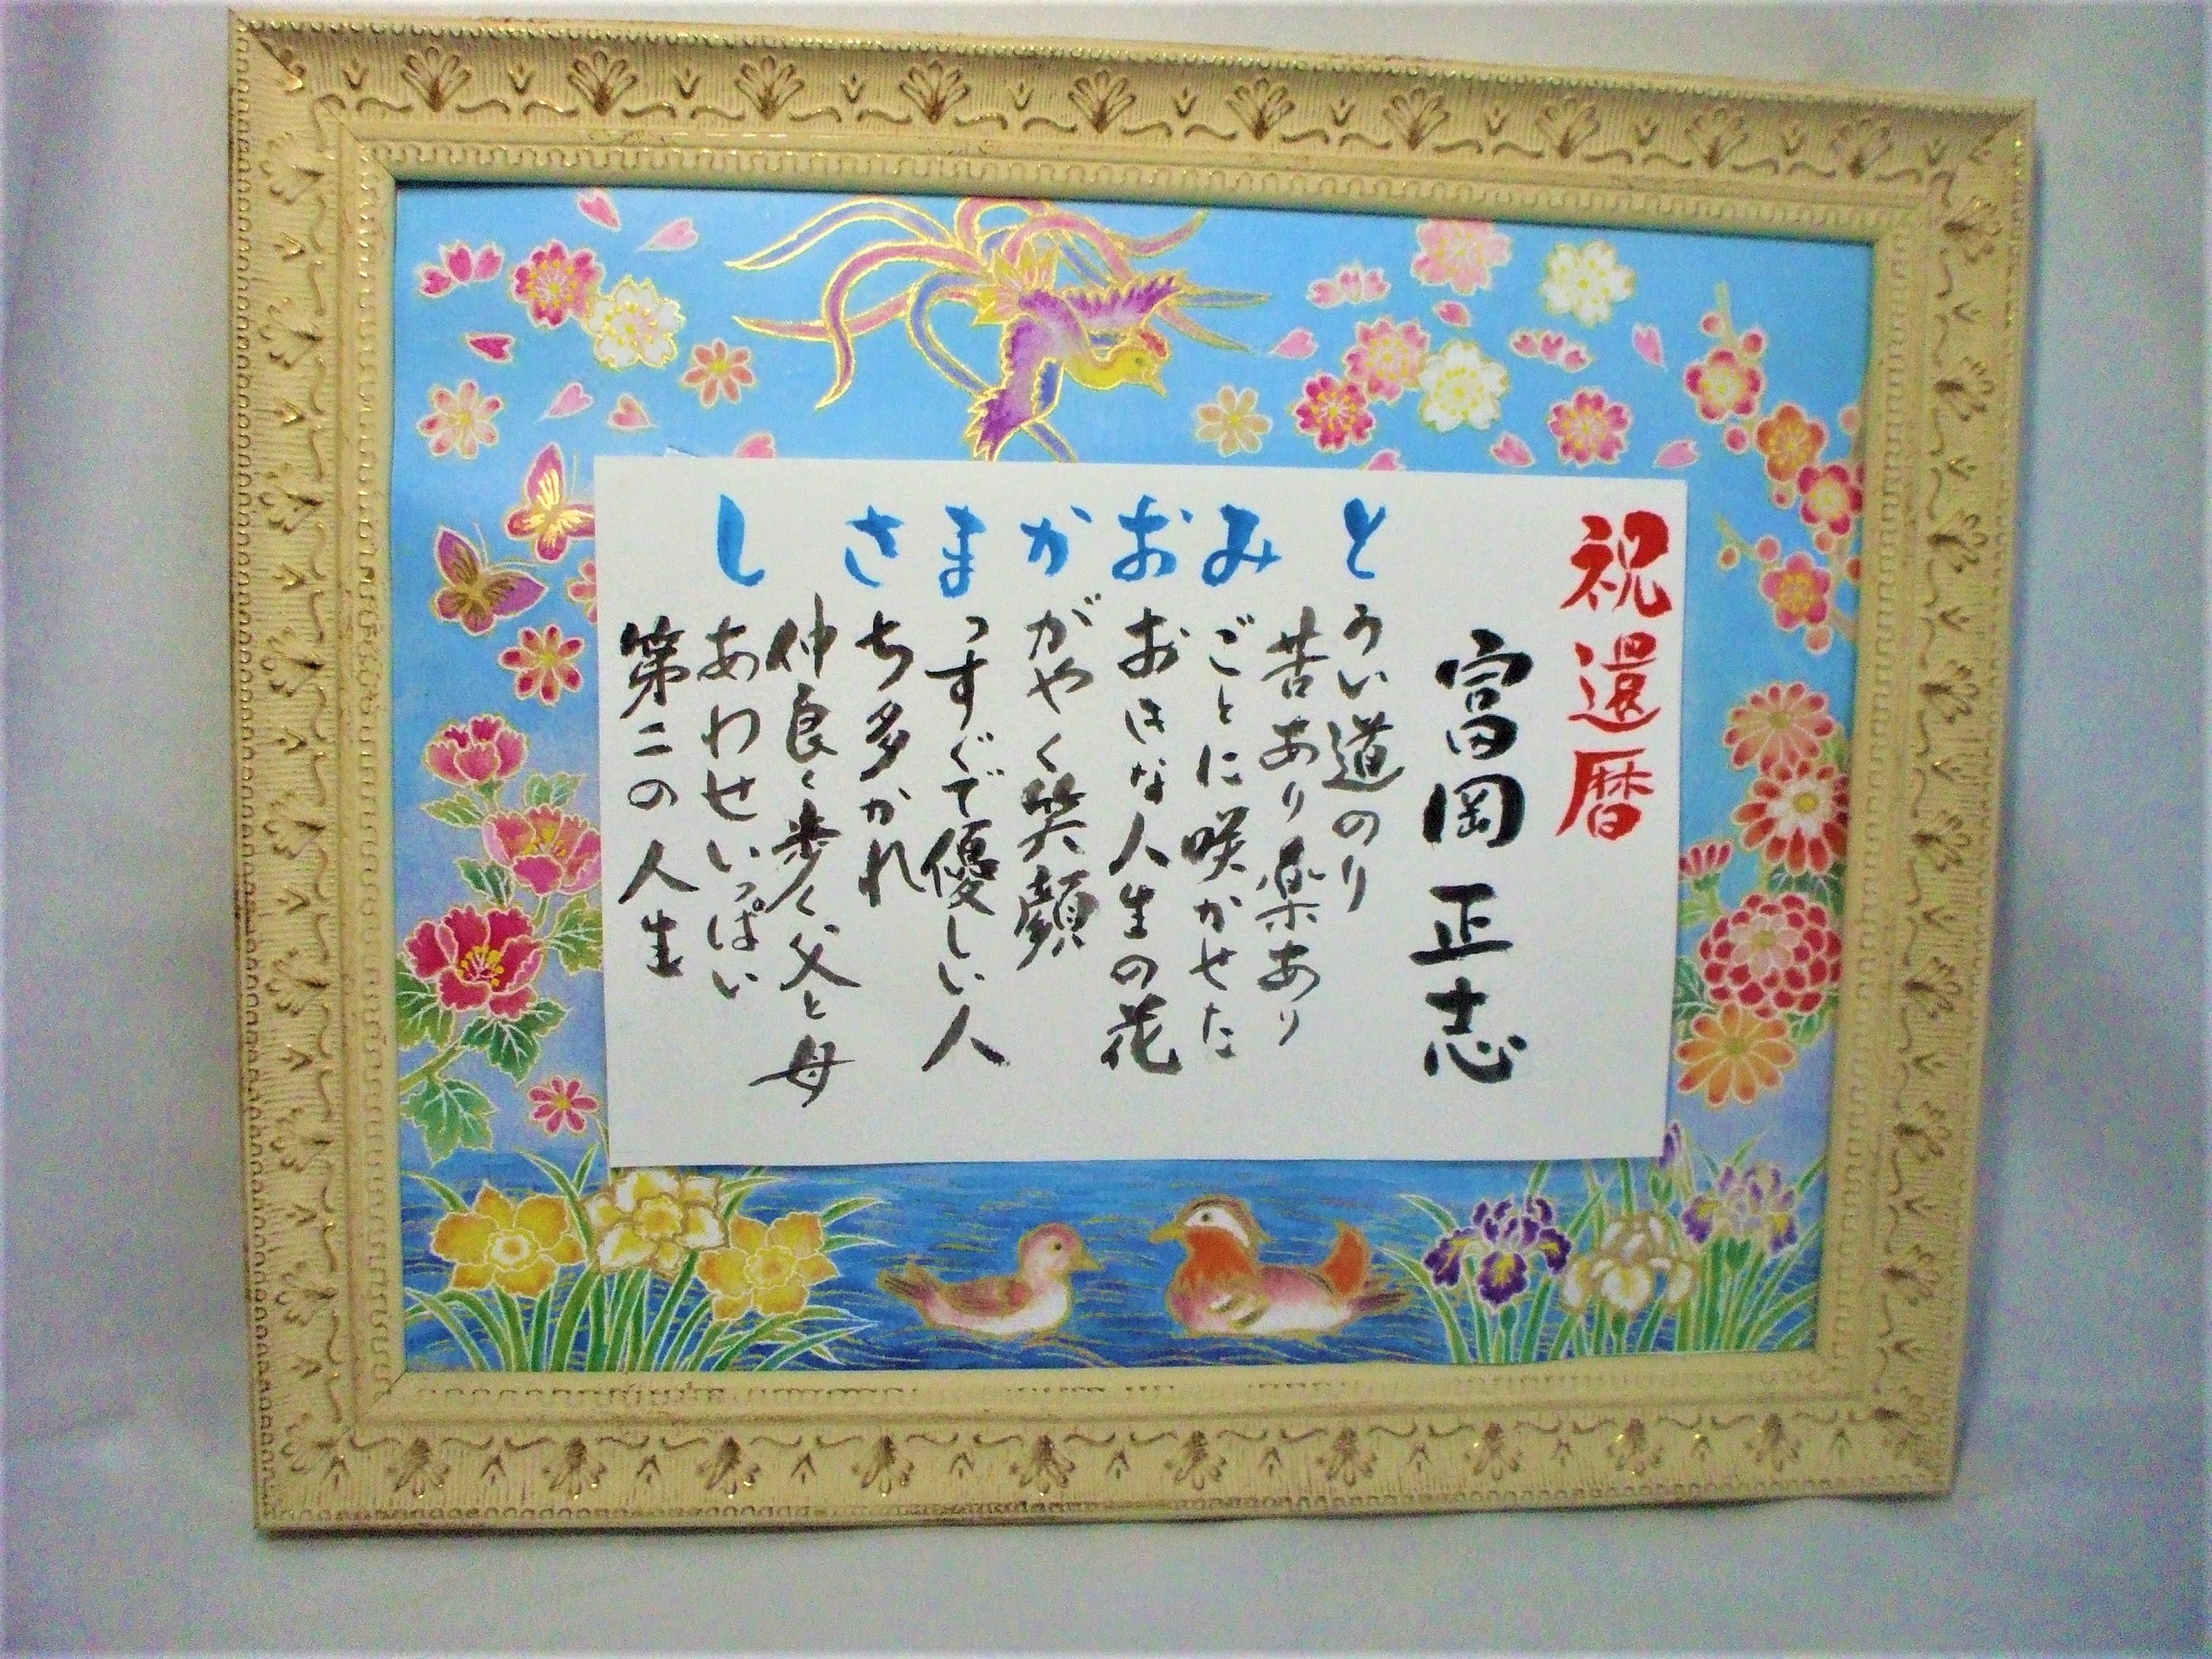 祝還暦
富岡正志
とうい道のり
苦あり楽あり
みごとに咲かせた
おおはな人生の花
かがやく笑顔
まっすぐで優しい人
さち多かれ
仲良く歩く父と母
しあわせいっぱい
第二の人生